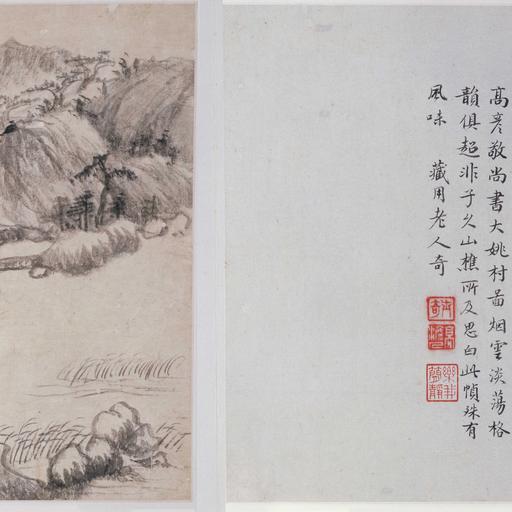 高彦敬尚書大姚村啚烟雲淡蕩格
韻俱超非子久山樵所及思白此幀殊有
風味 藏用老人奇